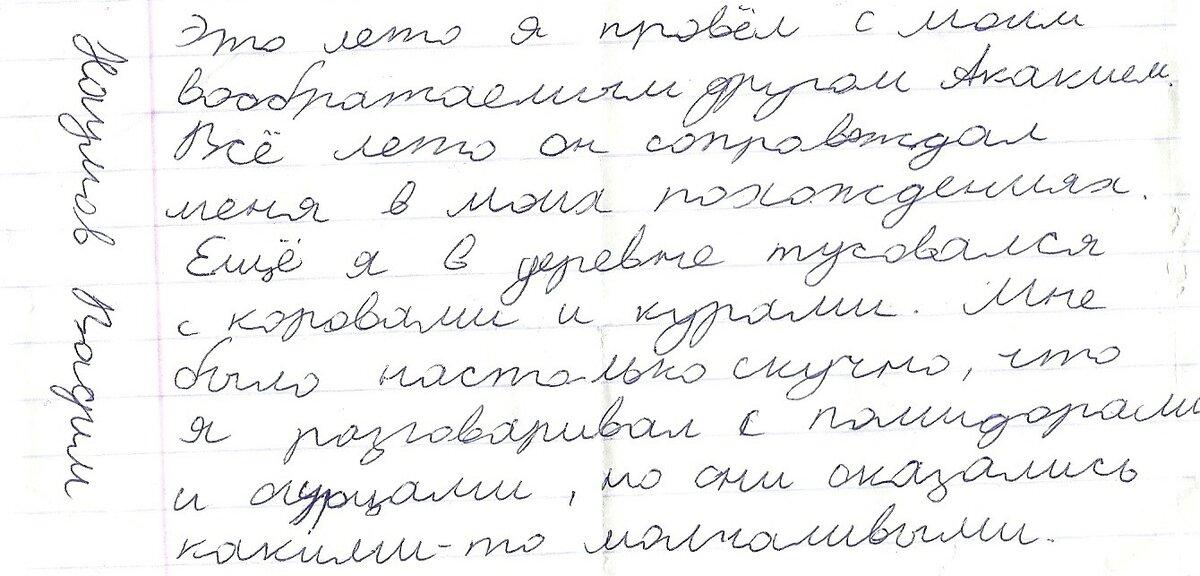 Это лето я провёл с моим
воображаемым другом Акакием.
Всё лето он сопровждал
меня в моих похождениях.
Ещё я в деревне тусовался
с коровами и курами. Мне
было настолько скучно, что
я разговаривал с помидорами
и огурцами, но они оказались
какими-то молчаливыми.
Наумов Вадим